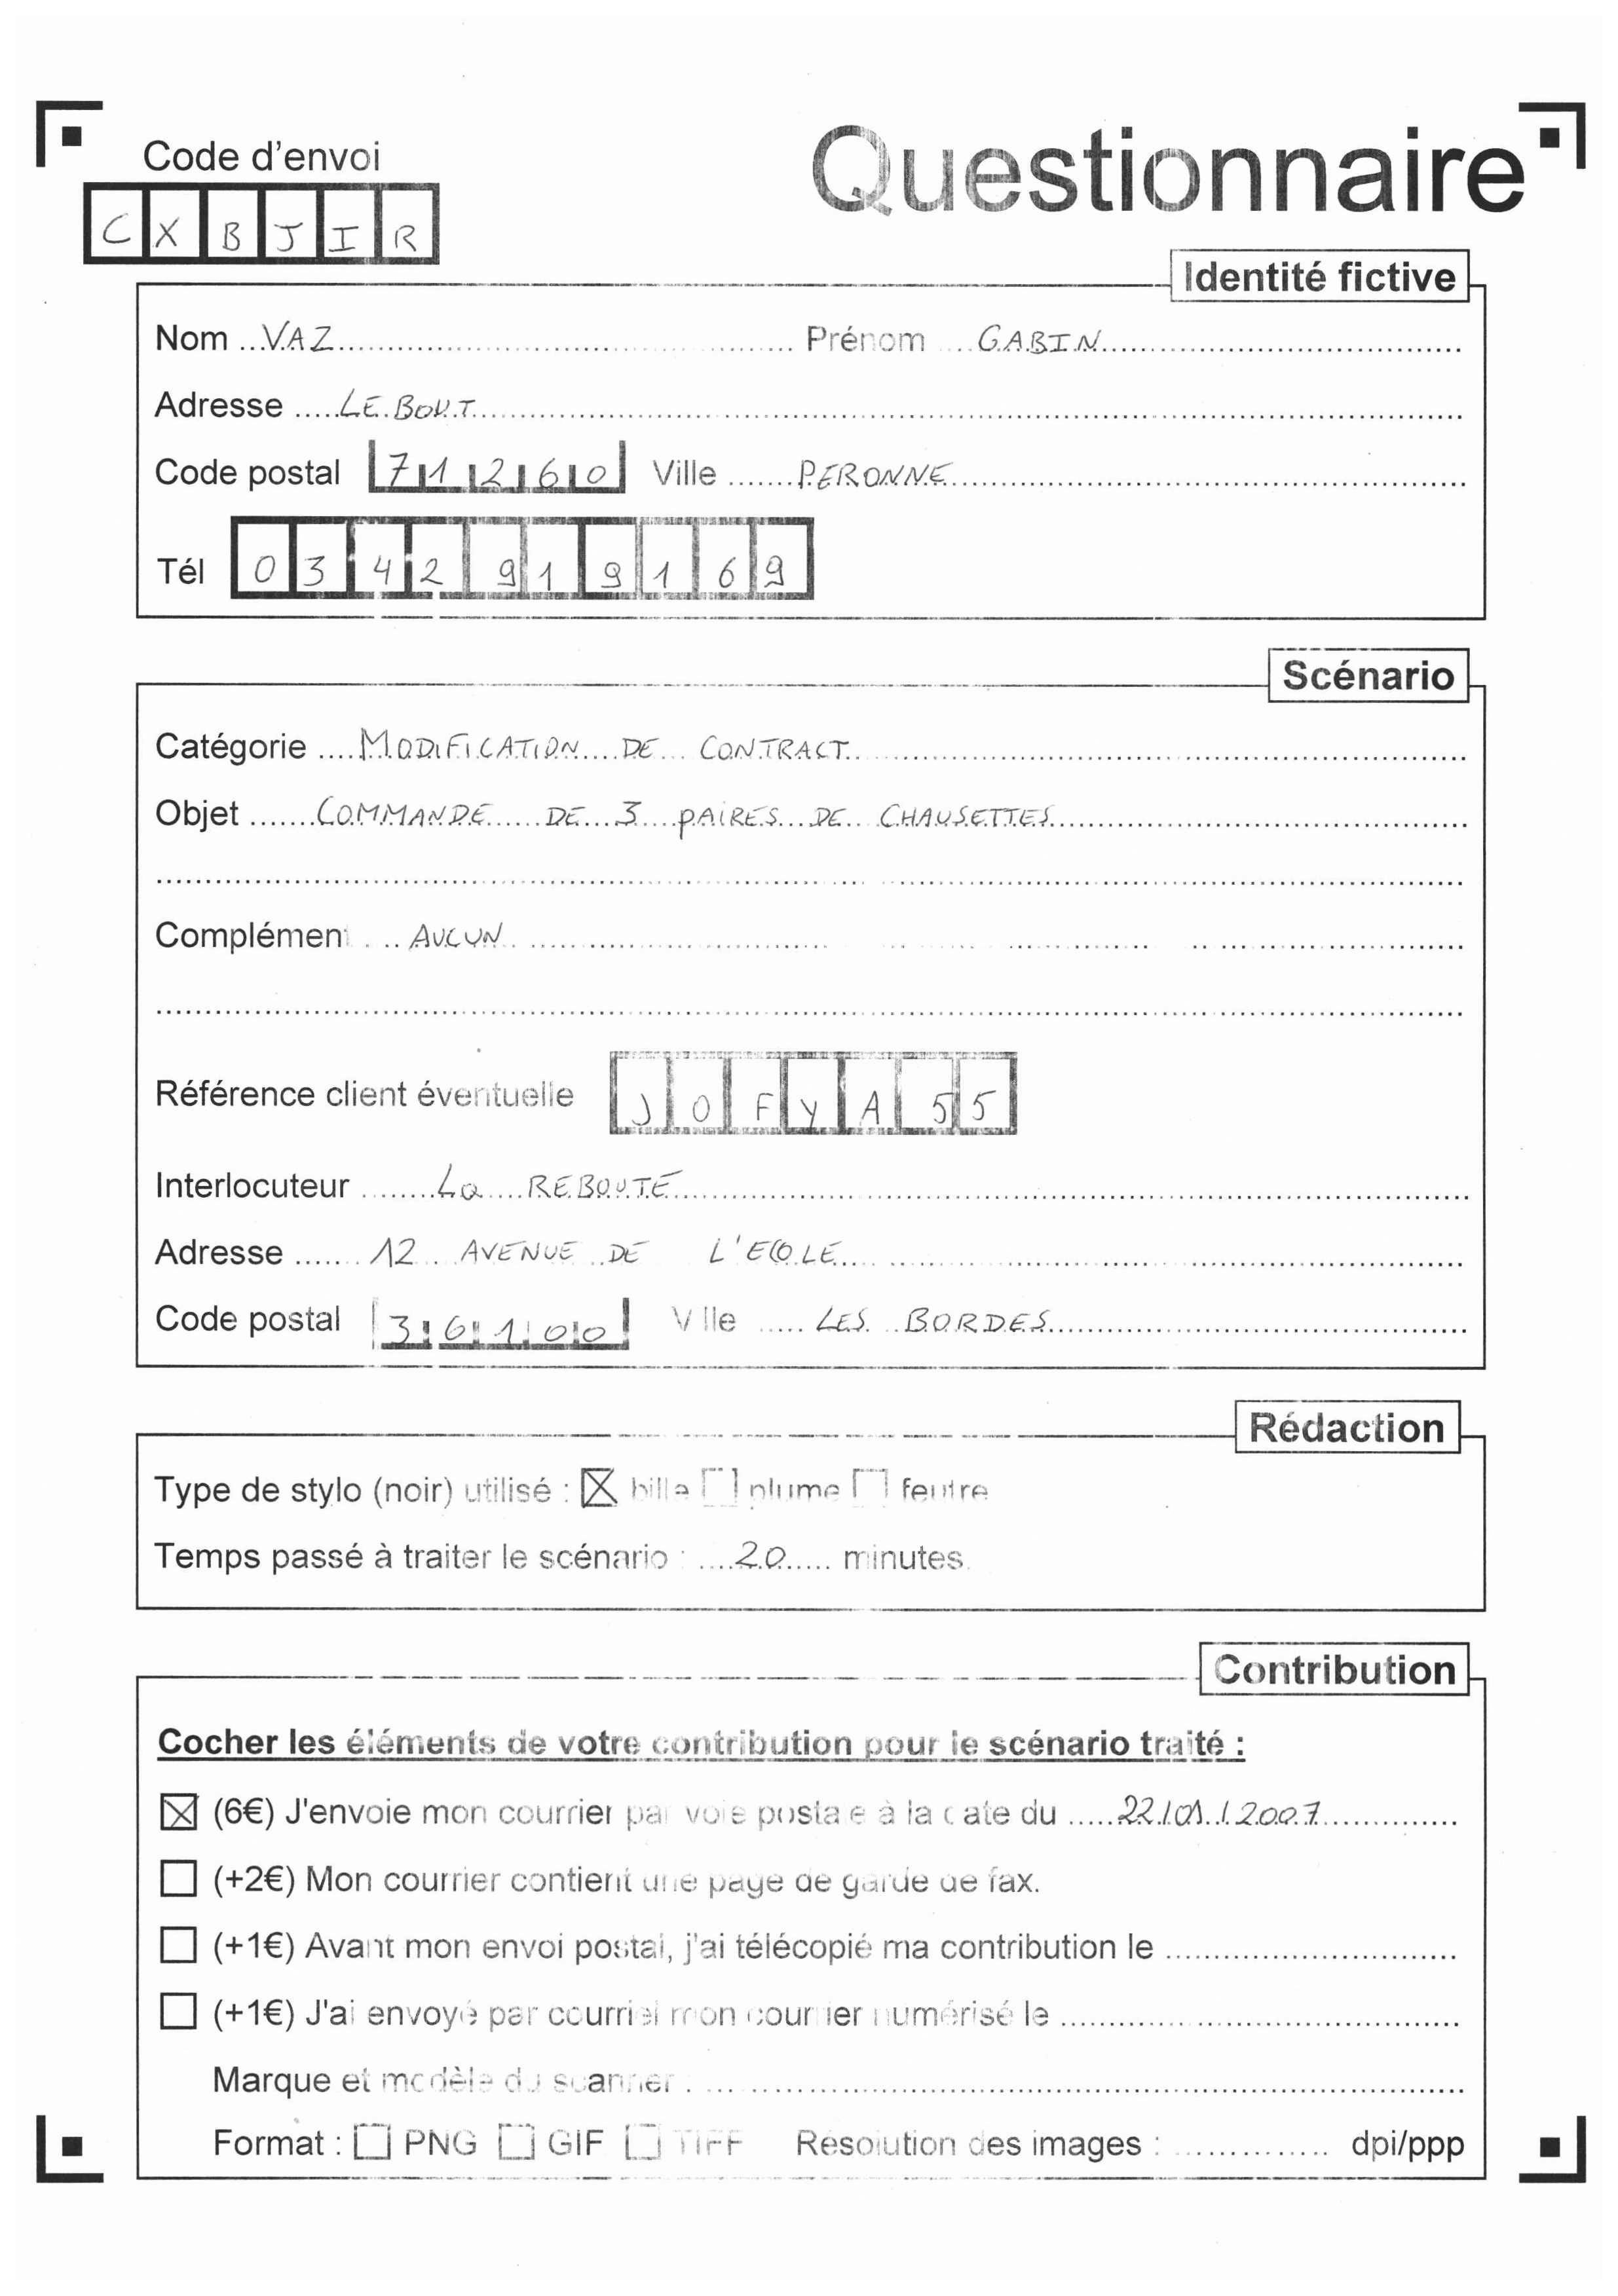 Code d'envoi
Questionnaire
C X B J I R
Identité fictive
Nom VAZ Prénom GABIN
Adresse LE BOUT
Code postal 71260 Ville PERONNE
Tél 0342919169
Scénario
Catégorie MODIFICATION DE CONTRACT
Objet COMMANDE DE 3 PAIRES DE CHAUSETTES
Complément AUCUN
Référence client éventuelle JOFYA55
Interlocuteur La REBOUTE
Adresse 12 AVENUE DE L'ECOLE
Code postal 36100 Ville LES BORDES
Rédaction
Type de stylo (noir) utilisé : ☒ bille ☐ plume ☐ feutre
Temps passé à traiter le scénario : 20 minutes.
Contribution
Cocher les éléments de votre contribution pour le scénario traité :
☒ (6€) J'envoie mon courrier par voie postale à la date du 22/01/2007
☐ (+2€) Mon courrier contient une page de garde de fax.
☐ (+1€) Avant mon envoi postal, j'ai télécopié ma contribution le
☐ (+1€) J'ai envoyé par courriel mon courrier numérisé le
Marque et modèle du scanner :
Format : ☐ PNG ☐ GIF ☐ TIFF Résolution des images : dpi/ppp